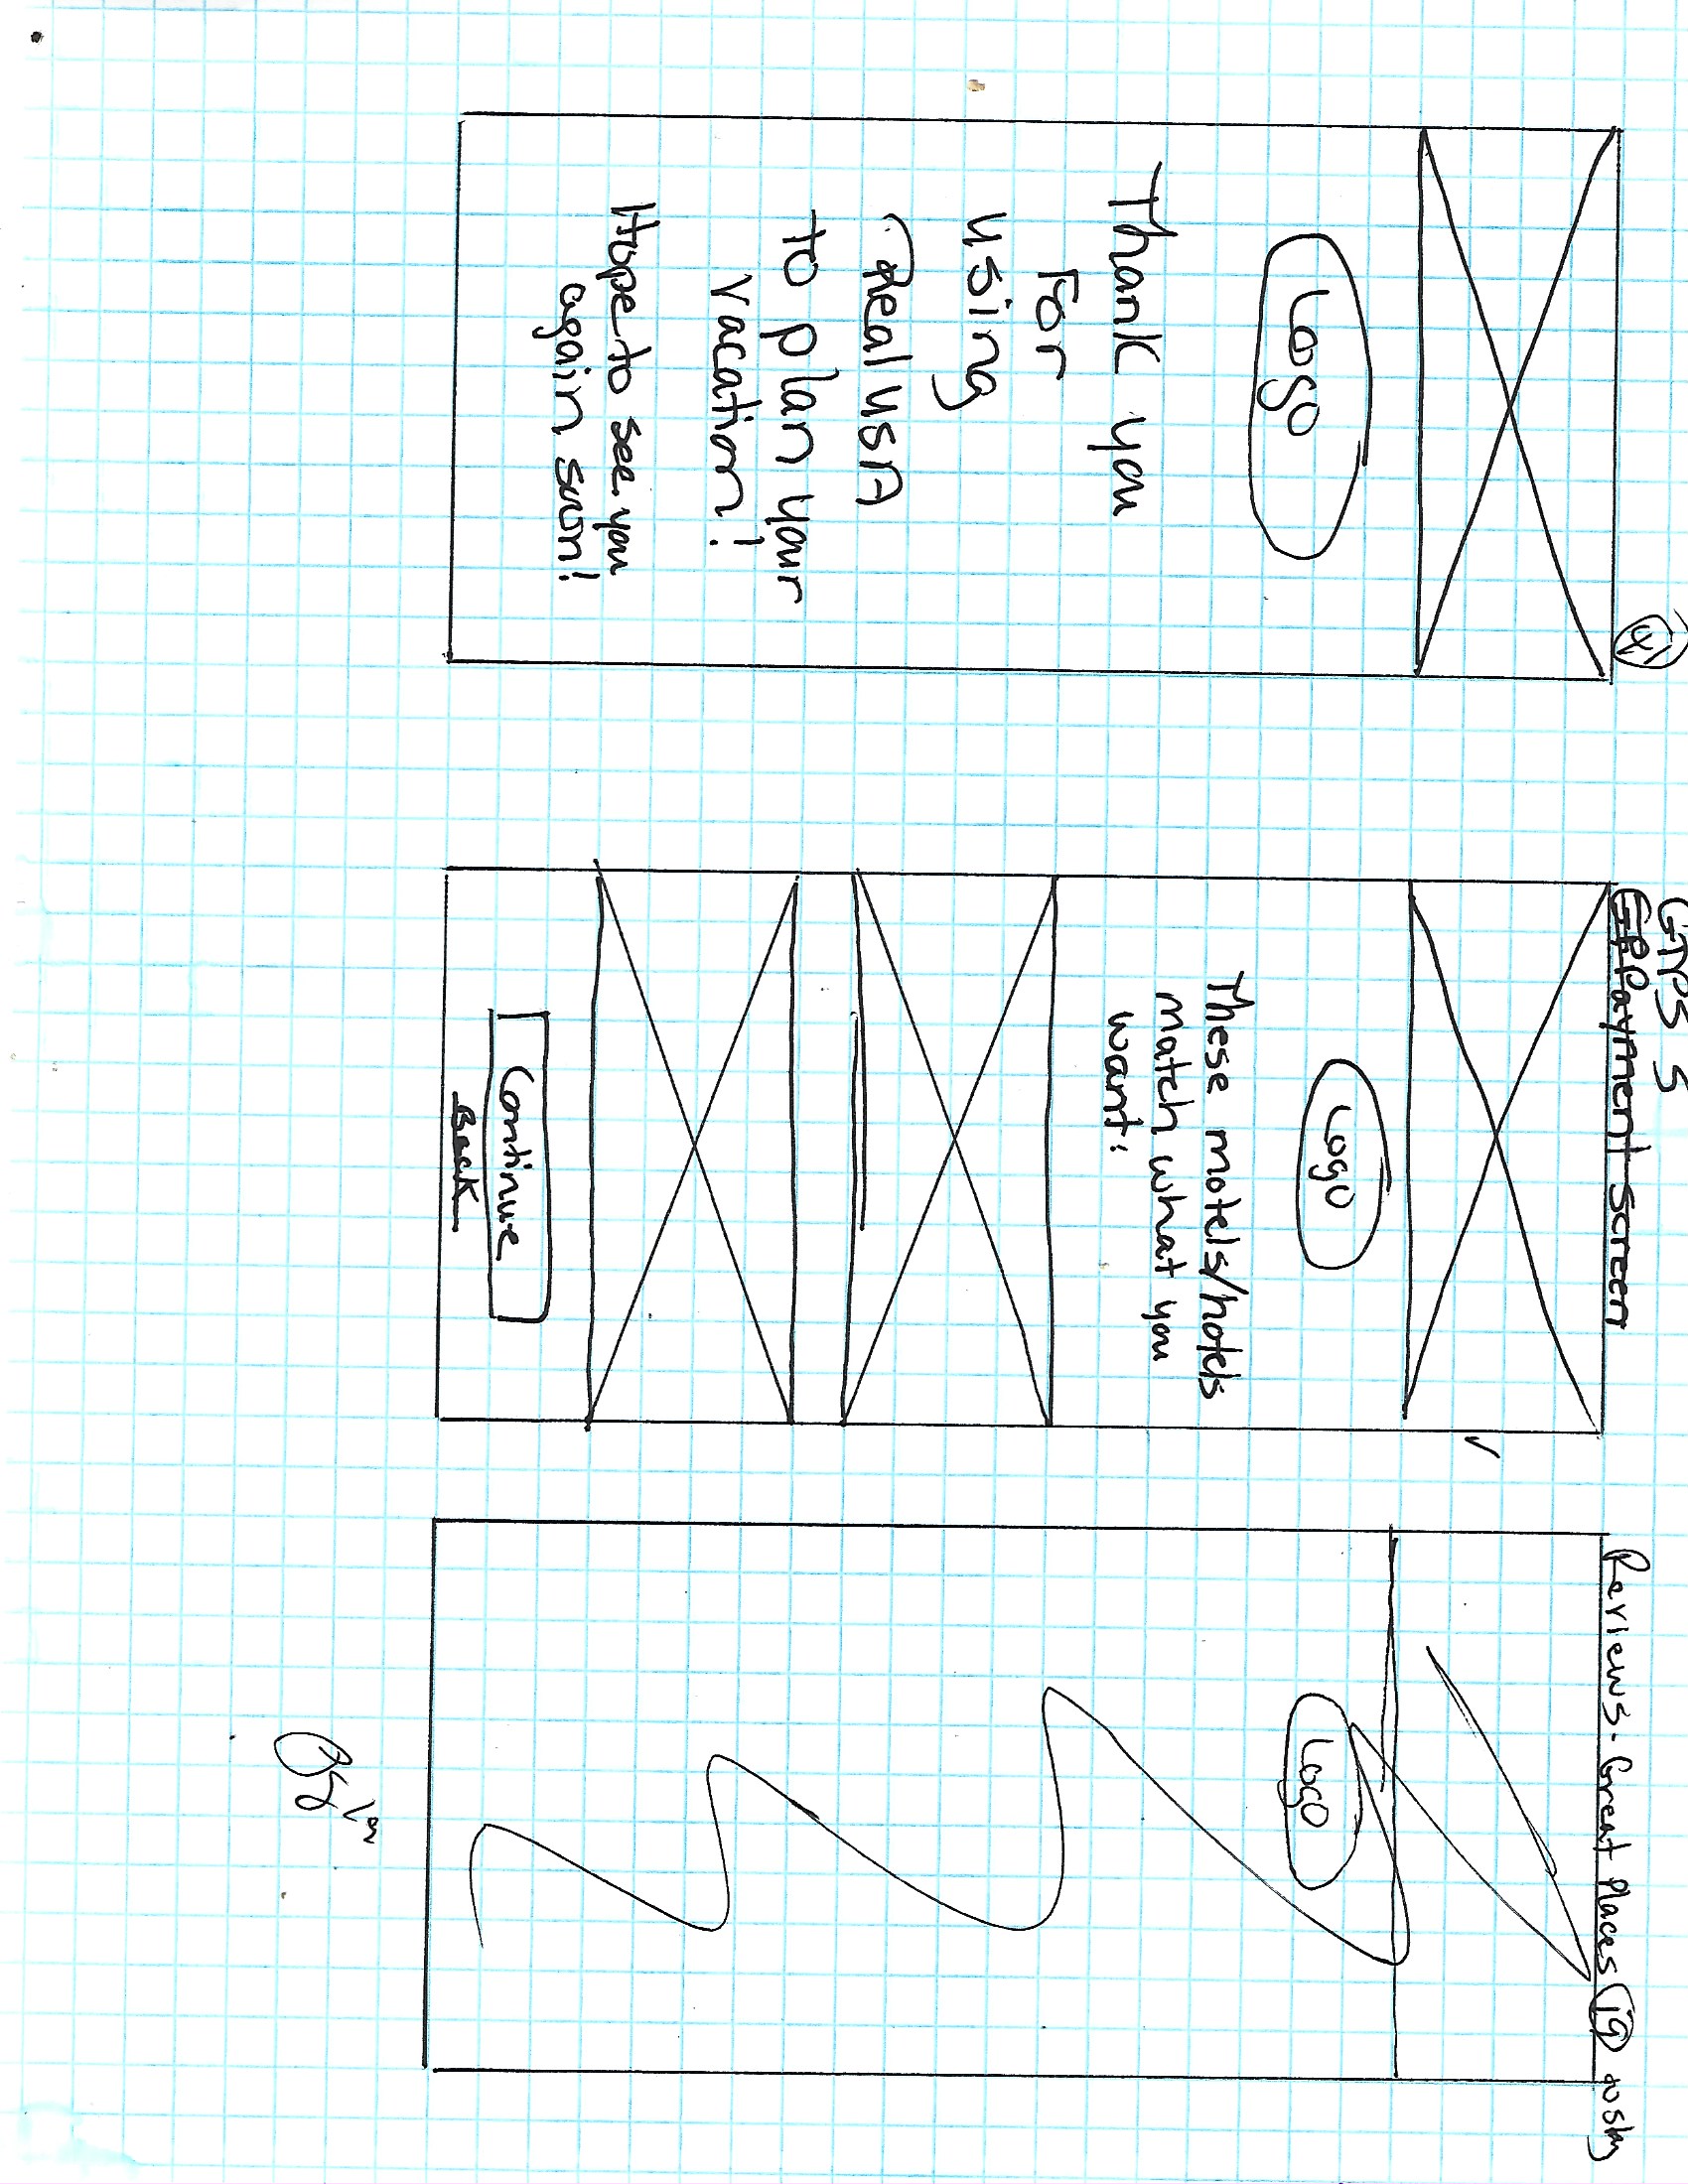 41
Logo
Thank you
For
using
Real USA
to plan your
vacation!
Hope to see you
again soon!
GTPS 5
Payment Screen
Logo
These motels/hotels
match what you
want:
Continue
Back
Reviews - Great Places 19 to stay
Logo